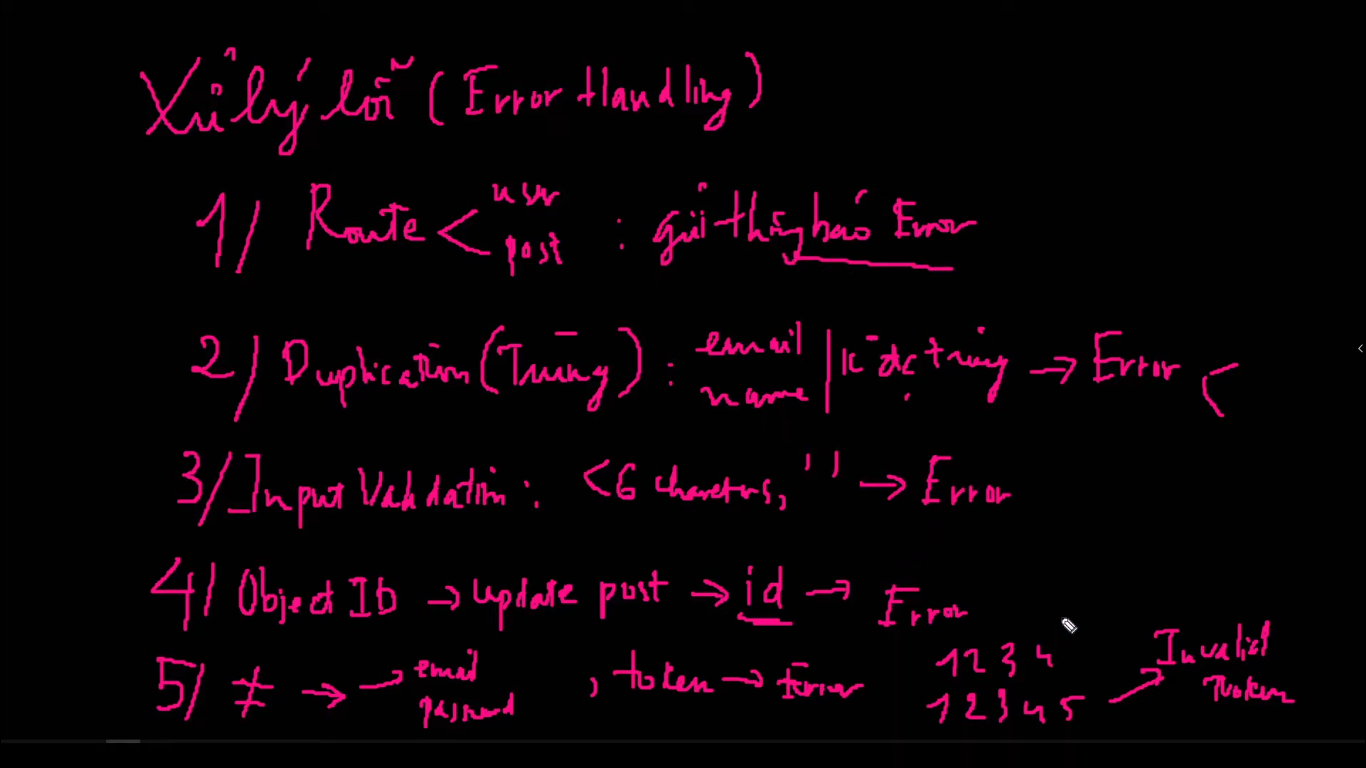 Xử lý lỗi (Error Handling)
1/ Route < user post : gửi thông báo Error
2/ Duplication (Trùng) : email name | k đc trùng → Error (
3/ Input Validation : <6 charecters, ' ' → Error
4/ Object ID → update post → id → Error
5/ ≠ → email password , token → Error
1234
12345 → Invalid Token